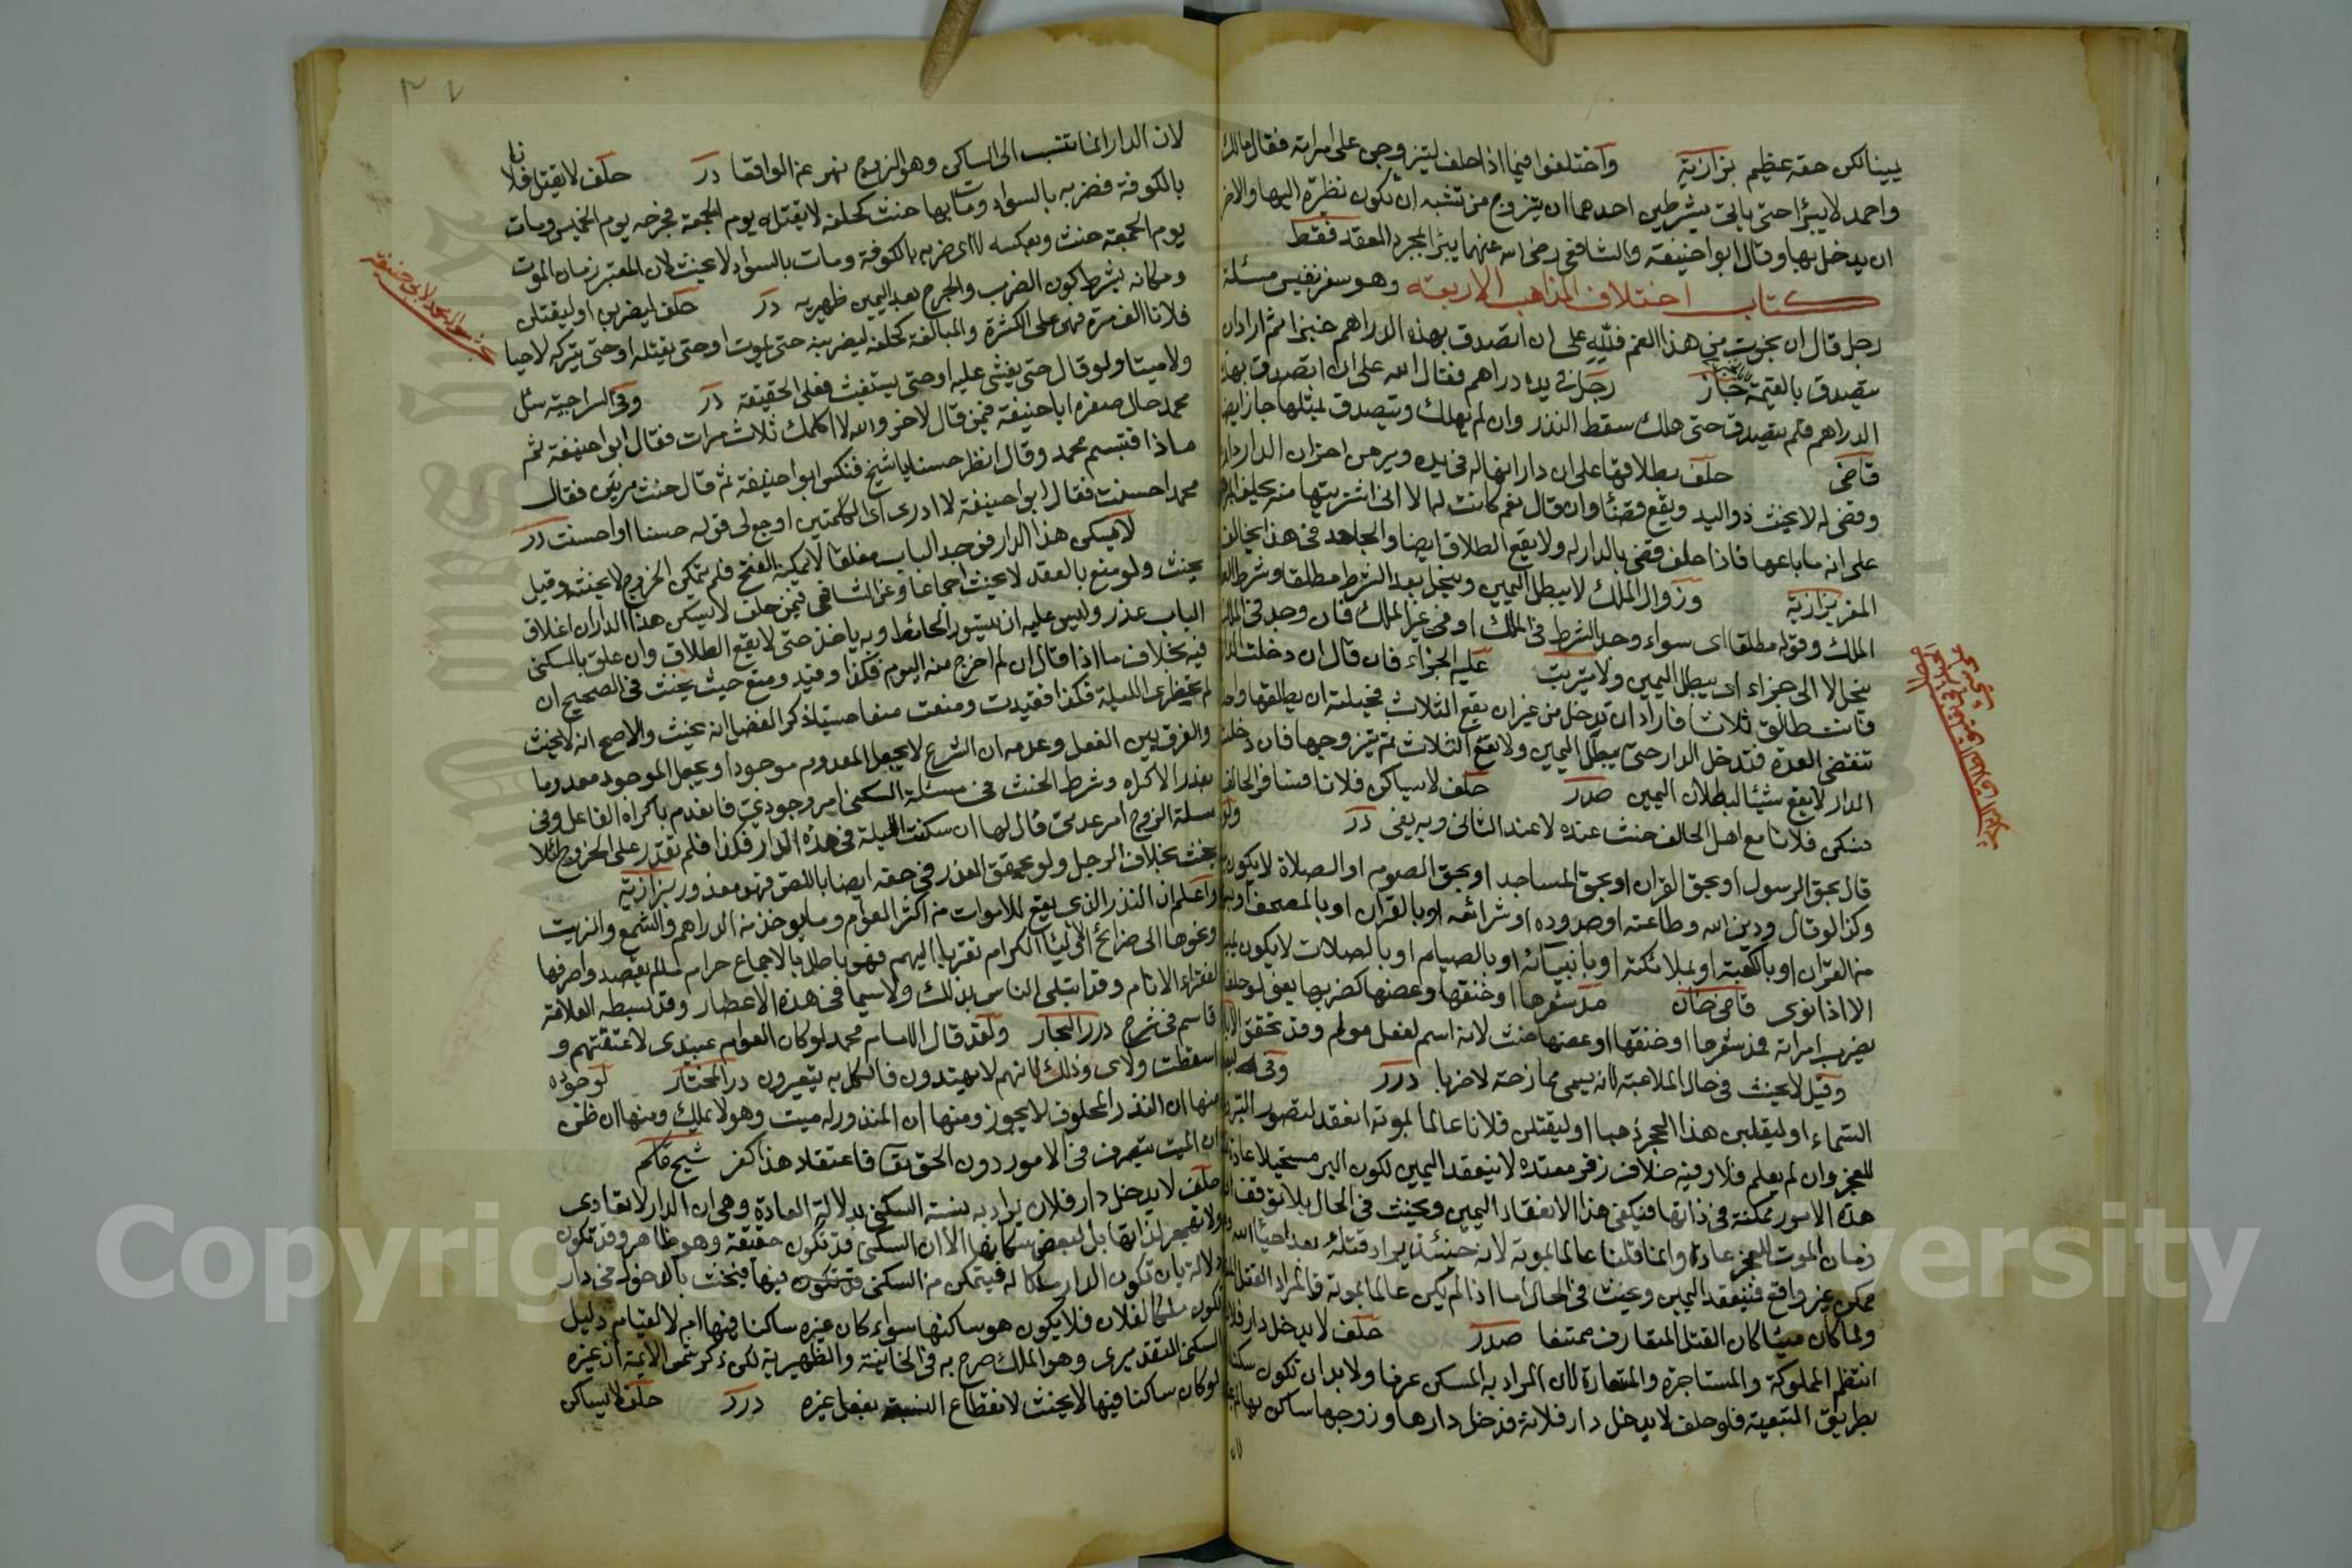 يمينا لكن حقه عظيم بزازية واختلفوا فيما اذا حلف ليتزوجن على امراته فقال مالك
واحمد لا يبرأ حتى ياتى بشرطين احدهما ان يتزوج من تشبه ان تكون نظيرة اليها والاخر
ان يدخل بها وقال ابو حنيفة والشافعى رضى الله عنهما يبرأ بمجرد العقد فقط
كتاب اختلاف المذاهب الاربعة وهو سفر نفيس مسئلة
رجل قال ان نجوت من هذا الغم فلله على ان اتصدق بهذه الدراهم خبزا ثم اراد ان
يتصدق بالقيمة جاز رجل فى يده دراهم فقال لله على ان اتصدق بهذه
الدراهم فلم يتصدق حتى هلك سقط النذر وان لم يهلك ويتصدق بمثلها جاز ايضا
قاضى حلف بطلاقها على ان دارا انها له فى يده وبرهن اخر ان الدار داره
وقضى له لا يحنث ذو اليد ويقع قضئا وان قال نعم كانت له الا انى اشتريتها منه يحلف
على انه ما باعها فاذا حلف قضى بالدار له ولا يقع الطلاق ايضا والجاهد فى هذا يخالف
المقر بزازية وزوال الملك لا يبطل اليمين وينحل بعد الشرط مطلقا وشرط
الملك وقوله مطلقا اى سواء وجد الشرط فى الملك او فى غير الملك فان وجد فى الملك
ينحل الا الى جزاء اى يبطل اليمين ولا يترتب عليه الجزاء فان قال ان دخلت الدار
فانت طالق ثلاثا فاراد ان تدخل من غير ان يقع الثلاث فحيلته ان يطلقها واحدة
تنقضى العدة فتدخل الدار حتى يبطل اليمين ولا يقع الثلاث ثم يتزوجها فان دخلت
الدار لا يقع شيئا لبطلان اليمين صدر حلف لا يساكن فلانا فسافر الحالف
فسكن فلانا مع اهل الحالف حنث عنده لا عند الثانى وبه يفتى در ولو
قال بحق الرسول او بحق القران او بحق المساجد او بحق الصوم او الصلاة لا يكون
وكذا لو قال ودين الله وطاعته او حدوده او شرائعه او بالقران او بالمصحف
من القران او بالكعبة او بملائكته او بانبيائه او بالصيام او بالصلات لا يكون
الا اذا نوى قاضى خان مد شعرها او خنقها وعضها كضربها يعنى لو حلف
يضرب امراته فمد شعرها او خنقها او عضها حنث لانه اسم لفعل مولم وقد تحقق
وقيل لا يحنث فى حال الملاعبة لانه يسمى ممازحة لا ضربا درر وفى
السماء او ليقلبن هذا الحجر ذهبا او ليقتلن فلانا عالما بموته انعقد لتصور البر
للعجز وان لم يعلم فلا وفيه خلاف زفر فعنده لا ينعقد اليمين لكون البر مستحيلا عادة
هذه الامور ممكنة فى ذاتها فيكفى هذا الانعقاد اليمين ويحنث فى الحال بلا توقف
زمان الموت للعجز عادة وانما قلنا عالما بموته لانه حينئذ يراد قتله بعد احياء الله
ممكن غير واقع فينعقد اليمين ويحنث فى الحال اما اذا لم يكن عالما بموته فالمراد القتل
ولما كان ميتا كان القتل المتعارف ممتنعا صدر حلف لا يدخل دار فلان
انتظم المملوكة والمستاجرة والمتعارة لان المراد به المسكن عرفا ولا بد ان تكون سكناه
بطريق التبعية فلو حلف لا يدخل دار فلانة فدخل دارها وزوجها ساكن بها
لان الدار انما تنسب الى الساكن وهو الزوج نهر عن الواقعات در حلف لا يقتل فلانا
بالكوفة فضربه بالسواد ومات بها حنث كحلفه لا يقتله يوم الجمعة فجرحه يوم الخميس ومات
يوم الجمعة حنث وبعكسه لا اى ضربه بالكوفة ومات بالسواد لا يحنث لان المعتبر زمان الموت
ومكانه بشرط كون الضرب والجرح بعد اليمين ظهيرية در حلف ليضربن او ليقتلن
فلانا الف مرة فهى على الكثرة والمبالغة كحلفه ليضربنه حتى يموت او حتى يقتله او حتى يتركه لا حيا
ولا ميتا ولو قال حتى يغشى عليه او حتى يستغيث فعلى الحقيقة در وفى السراجية سئل
محمد حال صغره ابا حنيفة فيمن قال لاخر والله لا اكلمك ثلاث مرات فقال ابو حنيفة ثم
ماذا فتبسم محمد وقال انظر حسنا يا شيخ فنكس ابو حنيفة ثم قال حنث مرتين فقال
محمد احسنت فقال ابو حنيفة لا ادرى اى الكلمتين اوجع لى قوله حسنا او احسنت در
لا يسكن هذا الدار فوجد الباب مغلقا لا يمكنه الفتح فلم يتمكن الخروج لا يحنث وقيل
يحنث ولو منع بالعقد لا يحنث اجماعا وعن الشافعى فيمن حلف لا يسكن هذا الدار ان اغلاق
الباب عذر وليس عليه ان يتسور الحائط وبه ياخذ حتى لا يقع الطلاق وان علق بالسكنى
فيه بخلاف ما اذا قال ان لم اخرج منه اليوم فكذا وقيد ومنع حيث يحنث فى الصحيح ان
لم تحضرى الليلة فكذا فقيدت ومنعت منعا حسيا ذكر الفضل انه يحنث والاصح انه لا يحنث
والفرق بين الفعل وعدمه ان الشرع لا يجعل المعدوم موجودا ويجعل الموجود معدوما
بعذر الاكراه وشرط الحنث فى مسئلة السكنى امر وجودى فانعدم باكراه الفاعل وفى
مسئلة الزوج امر عدمى قال لها ان سكنت الليلة فى هذه الدار فكذا فلم تقدر على الخروج ليلا
يحنث بخلاف الرجل ولو تحقق العذر فى حقه ايضا باللصق فهو معذور بزازية
واعلم ان النذر الذى يقع للاموات من اكثر العوام وما يوخذ من الدراهم والشمع والزيت
ونحوها الى ضرائح الاولياء الكرام تقربا اليهم فهو باطل بالاجماع حرام ما لم يقصدوا صرفها
لفقراء الانام وقد ابتلى الناس بذلك ولا سيما فى هذه الاعصار وقد بسطه العلامة
قاسم فى شرح درر البحار ولقد قال الامام محمد لو كان العوام عبيدى لاعتقتهم و
اسقطت ولاى وذلك لانهم لا يهتدون فالكل به يتعيرون در المختار لوجوه
منها ان النذر المخلوق لا يجوز ومنها ان المنذور له ميت وهو لا يملك ومنها ان ظن
ان الميت يتصرف فى الامور دون الحق تعا فاعتقاد هذا كفر شيخ قاسم
حلف لا يدخل دار فلان يراد به نسبة السكنى بدلالة العادة وهى ان الدار لا تعادى
ولا تهجر لذاتها بل لبغض سكانها الا ان السكنى قد تكون حقيقة وهو ظاهر وقد تكون
دلالة بان تكون الدار ملكا له فيتمكن من السكنى فيها فيحنث بالدخول فى دار
تكون ملكا لفلان فلا يكون هو ساكنها سواء كان غيره ساكنا فيها ام لا لقيام دليل
السكنى التقديرى وهو الملك صرح به فى الخانية والظهيرية لكن ذكر شمس الايمة ان غيره
لو كان ساكنا فيها لا يحنث لانقطاع النسبة بفعل غيره درر حلف لا يساكن